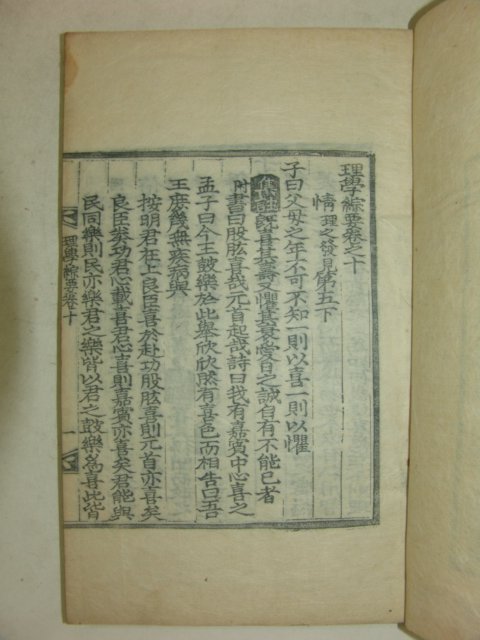 理學綜要卷之十
情理之發見第五下
子曰父母之年不可不知一則以喜一則以懼
集註旣喜其壽又懼其衰愛日之誠自有不能已者
附書曰股肱喜哉元首起哉詩曰我有嘉賓中心喜之
孟子曰今王鼓樂於此擧欣欣然有喜色而相告曰吾
王庶幾無疾病與
按明君在上良臣喜於赴功股肱喜則元首亦喜矣
良臣樂功君心載喜君心喜則嘉賓亦喜矣君能與
民同樂則民亦樂君之樂皆以君之鼓樂爲喜此皆
理學綜要卷十
一